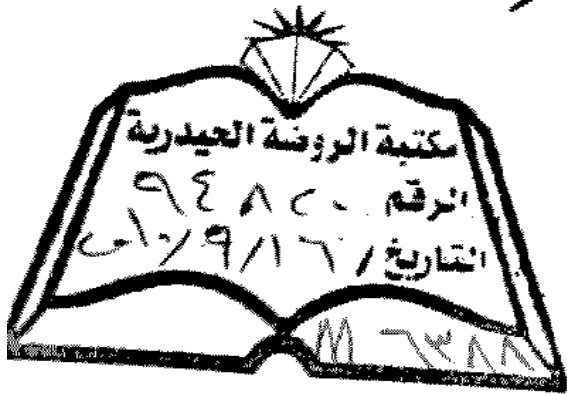 مكتبة الروضة الحيدرية
الرقم ٩٤٨٢٠
التاريخ ١٦/٩/٢٠١٠
M ٦٣٨٨